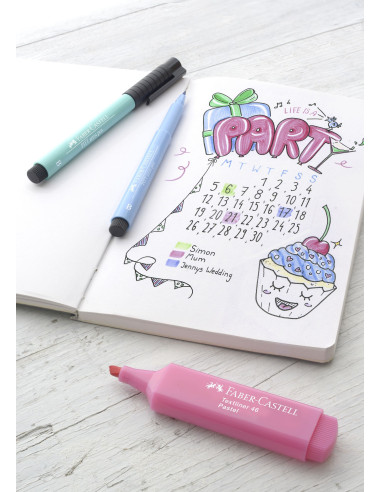 LIFE IS A
PARTY
M T W T F S S
1, 2, 3, 4
5 6 7 8 9 10 11
12, 13, 14, 15, 16, 17, 18
19, 20, 21, 22, 23, 24, 25
26, 27, 28, 29, 30,
Simon
Mum
Jennys Wedding
FABER-CASTELL
FABER-CASTELL
FABER-CASTELL
Textliner 46
Pastel